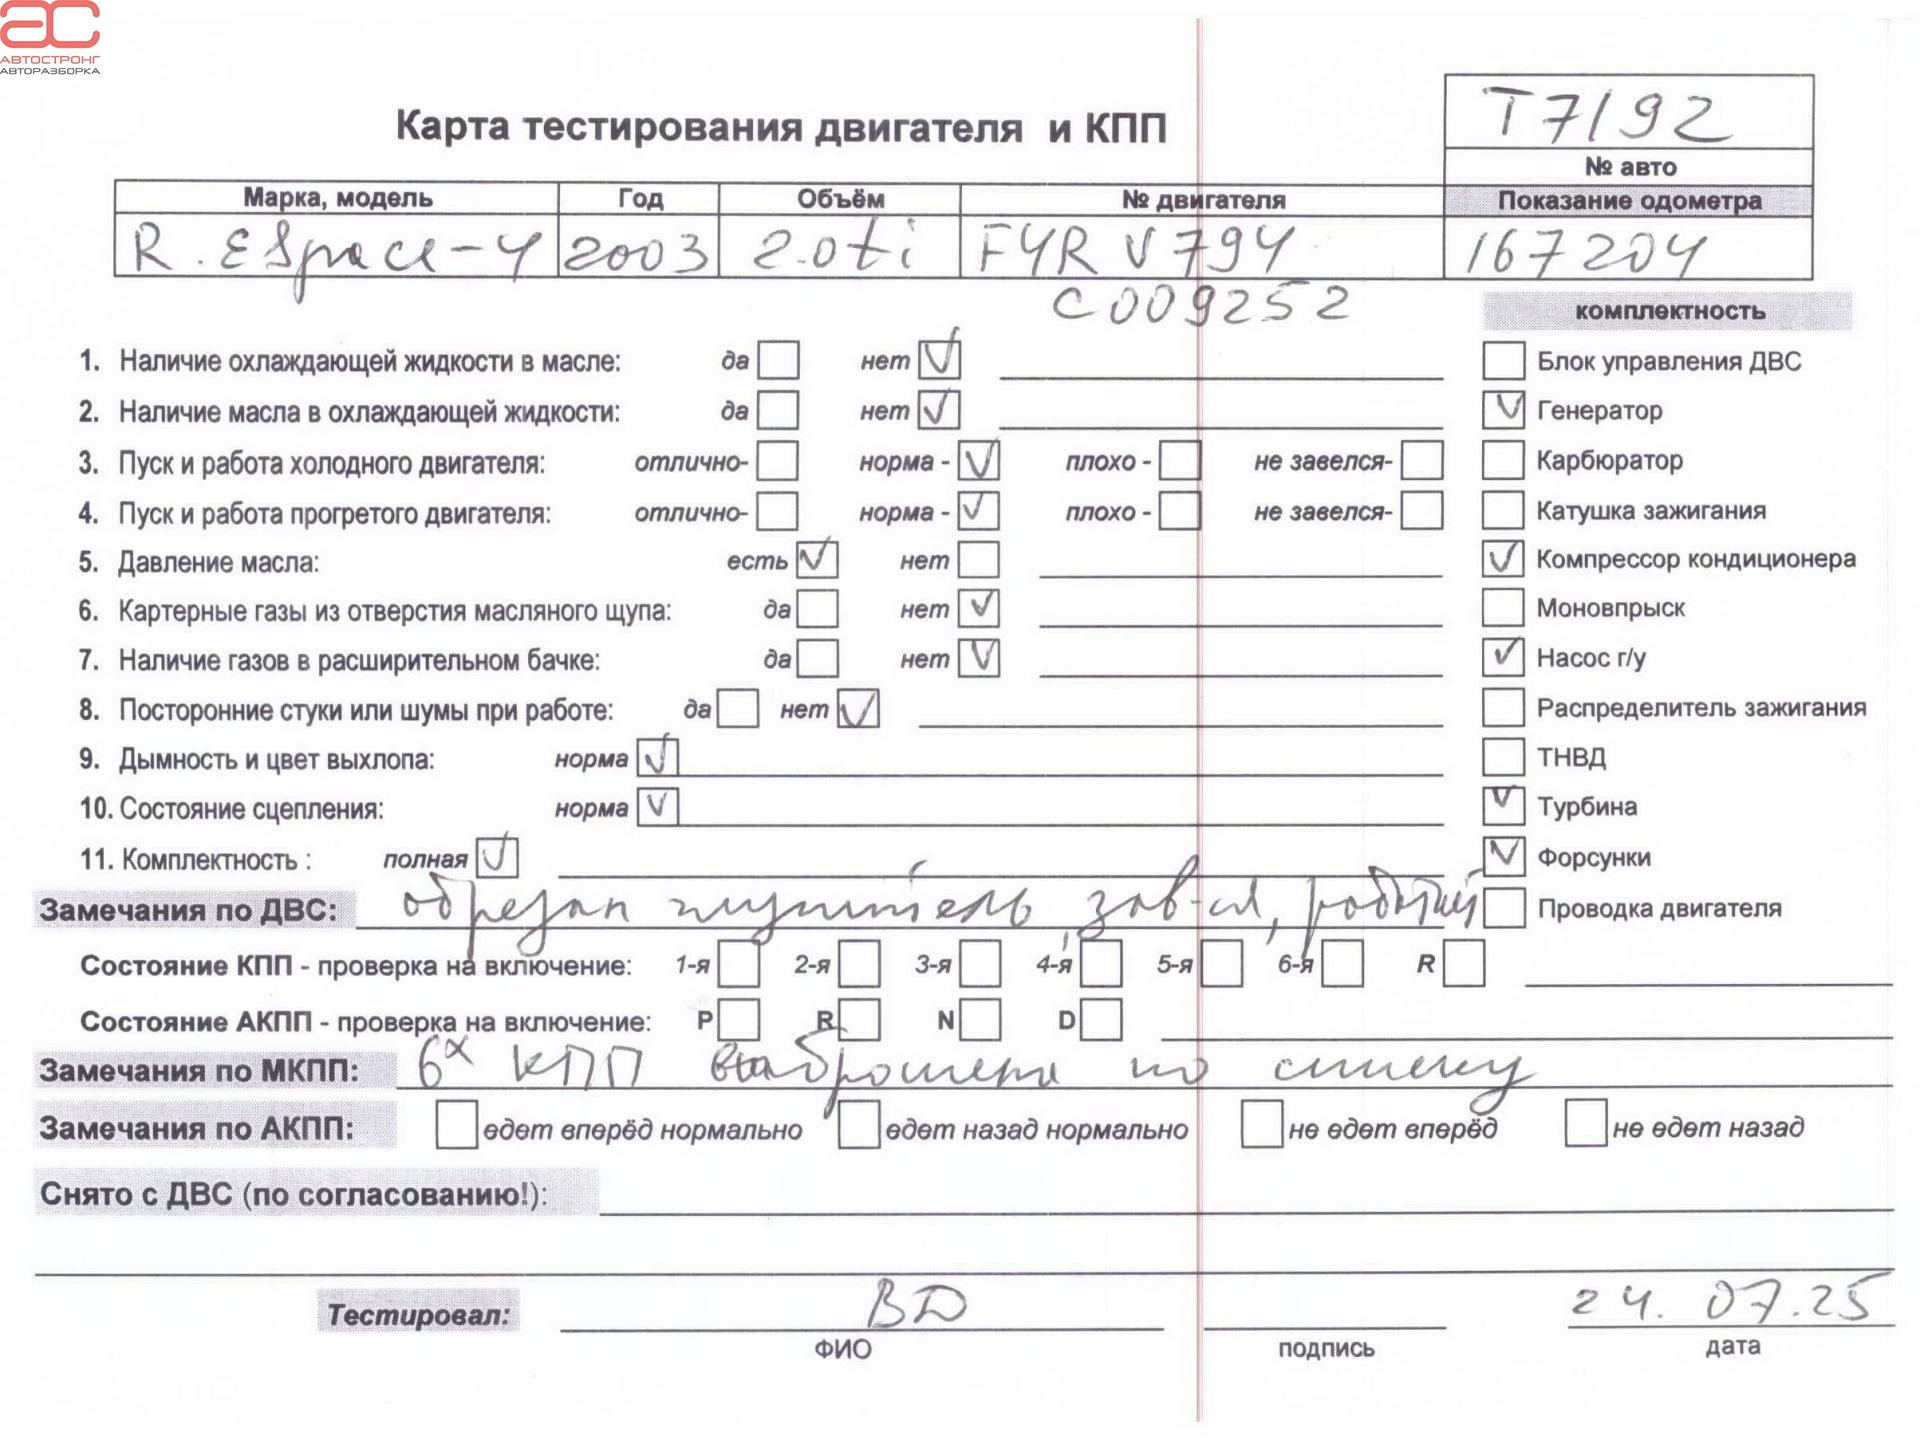 АВТОСТРОНГ
АВТОРАЗБОРКА
Т7192
Карта тестирования двигателя и КПП
№ авто
Марка, модель Год Объём № двигателя Показание одометра
R. ESpace-4 2003 2.0ti F4R V794 167204
C009252
комплектность
1. Наличие охлаждающей жидкости в масле: да нет V Блок управления ДВС
2. Наличие масла в охлаждающей жидкости: да нет V V Генератор
3. Пуск и работа холодного двигателя: отлично- норма - V плохо - не завелся- Карбюратор
4. Пуск и работа прогретого двигателя: отлично- норма - V плохо - не завелся- Катушка зажигания
5. Давление масла: есть V нет V Компрессор кондиционера
6. Картерные газы из отверстия масляного щупа: да нет V Моновпрыск
7. Наличие газов в расширительном бачке: да нет V V Насос г/у
8. Посторонние стуки или шумы при работе: да нет V Распределитель зажигания
9. Дымность и цвет выхлопа: норма V ТНВД
10. Состояние сцепления: норма V V Турбина
11. Комплектность : полная V V Форсунки
Замечания по ДВС: обрезан глушитель, зав-ся, работает Проводка двигателя
Состояние КПП - проверка на включение: 1-я 2-я 3-я 4-я 5-я 6-я R
Состояние АКПП - проверка на включение: P R N D
Замечания по МКПП: 6х КПП выброшена по списку
Замечания по АКПП: едет вперёд нормально едет назад нормально не едет вперёд не едет назад
Снято с ДВС (по согласованию!):
Тестировал: ВД 24.07.25
ФИО подпись дата